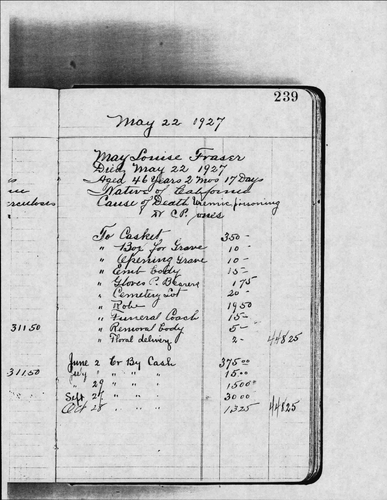 239
May 22 1927
May Louise Fraser
Died May 22 1927
Aged 46 Years 2 Mos 17 Days
Native of California
Cause of Death Uremic poisoning
Dr C.P. Jones
To Casket 350 -
" Box for Grave 10 -
" Opening Grave 10 -
" Emb body 15 -
" Gloves P. Bearers 1 75
" Cemetery Lot 20 -
" Robe 19 50
" Funeral Coach 15 -
" Removal body 5 -
" Floral delivery 2 - 448 25
June 2 Cr By Cash 375 00
" " " 15 00
29 " " " 15 00
Sept 27 " " " 30 00
Oct 28 " " " 13 25 448 25
311.50
311.50